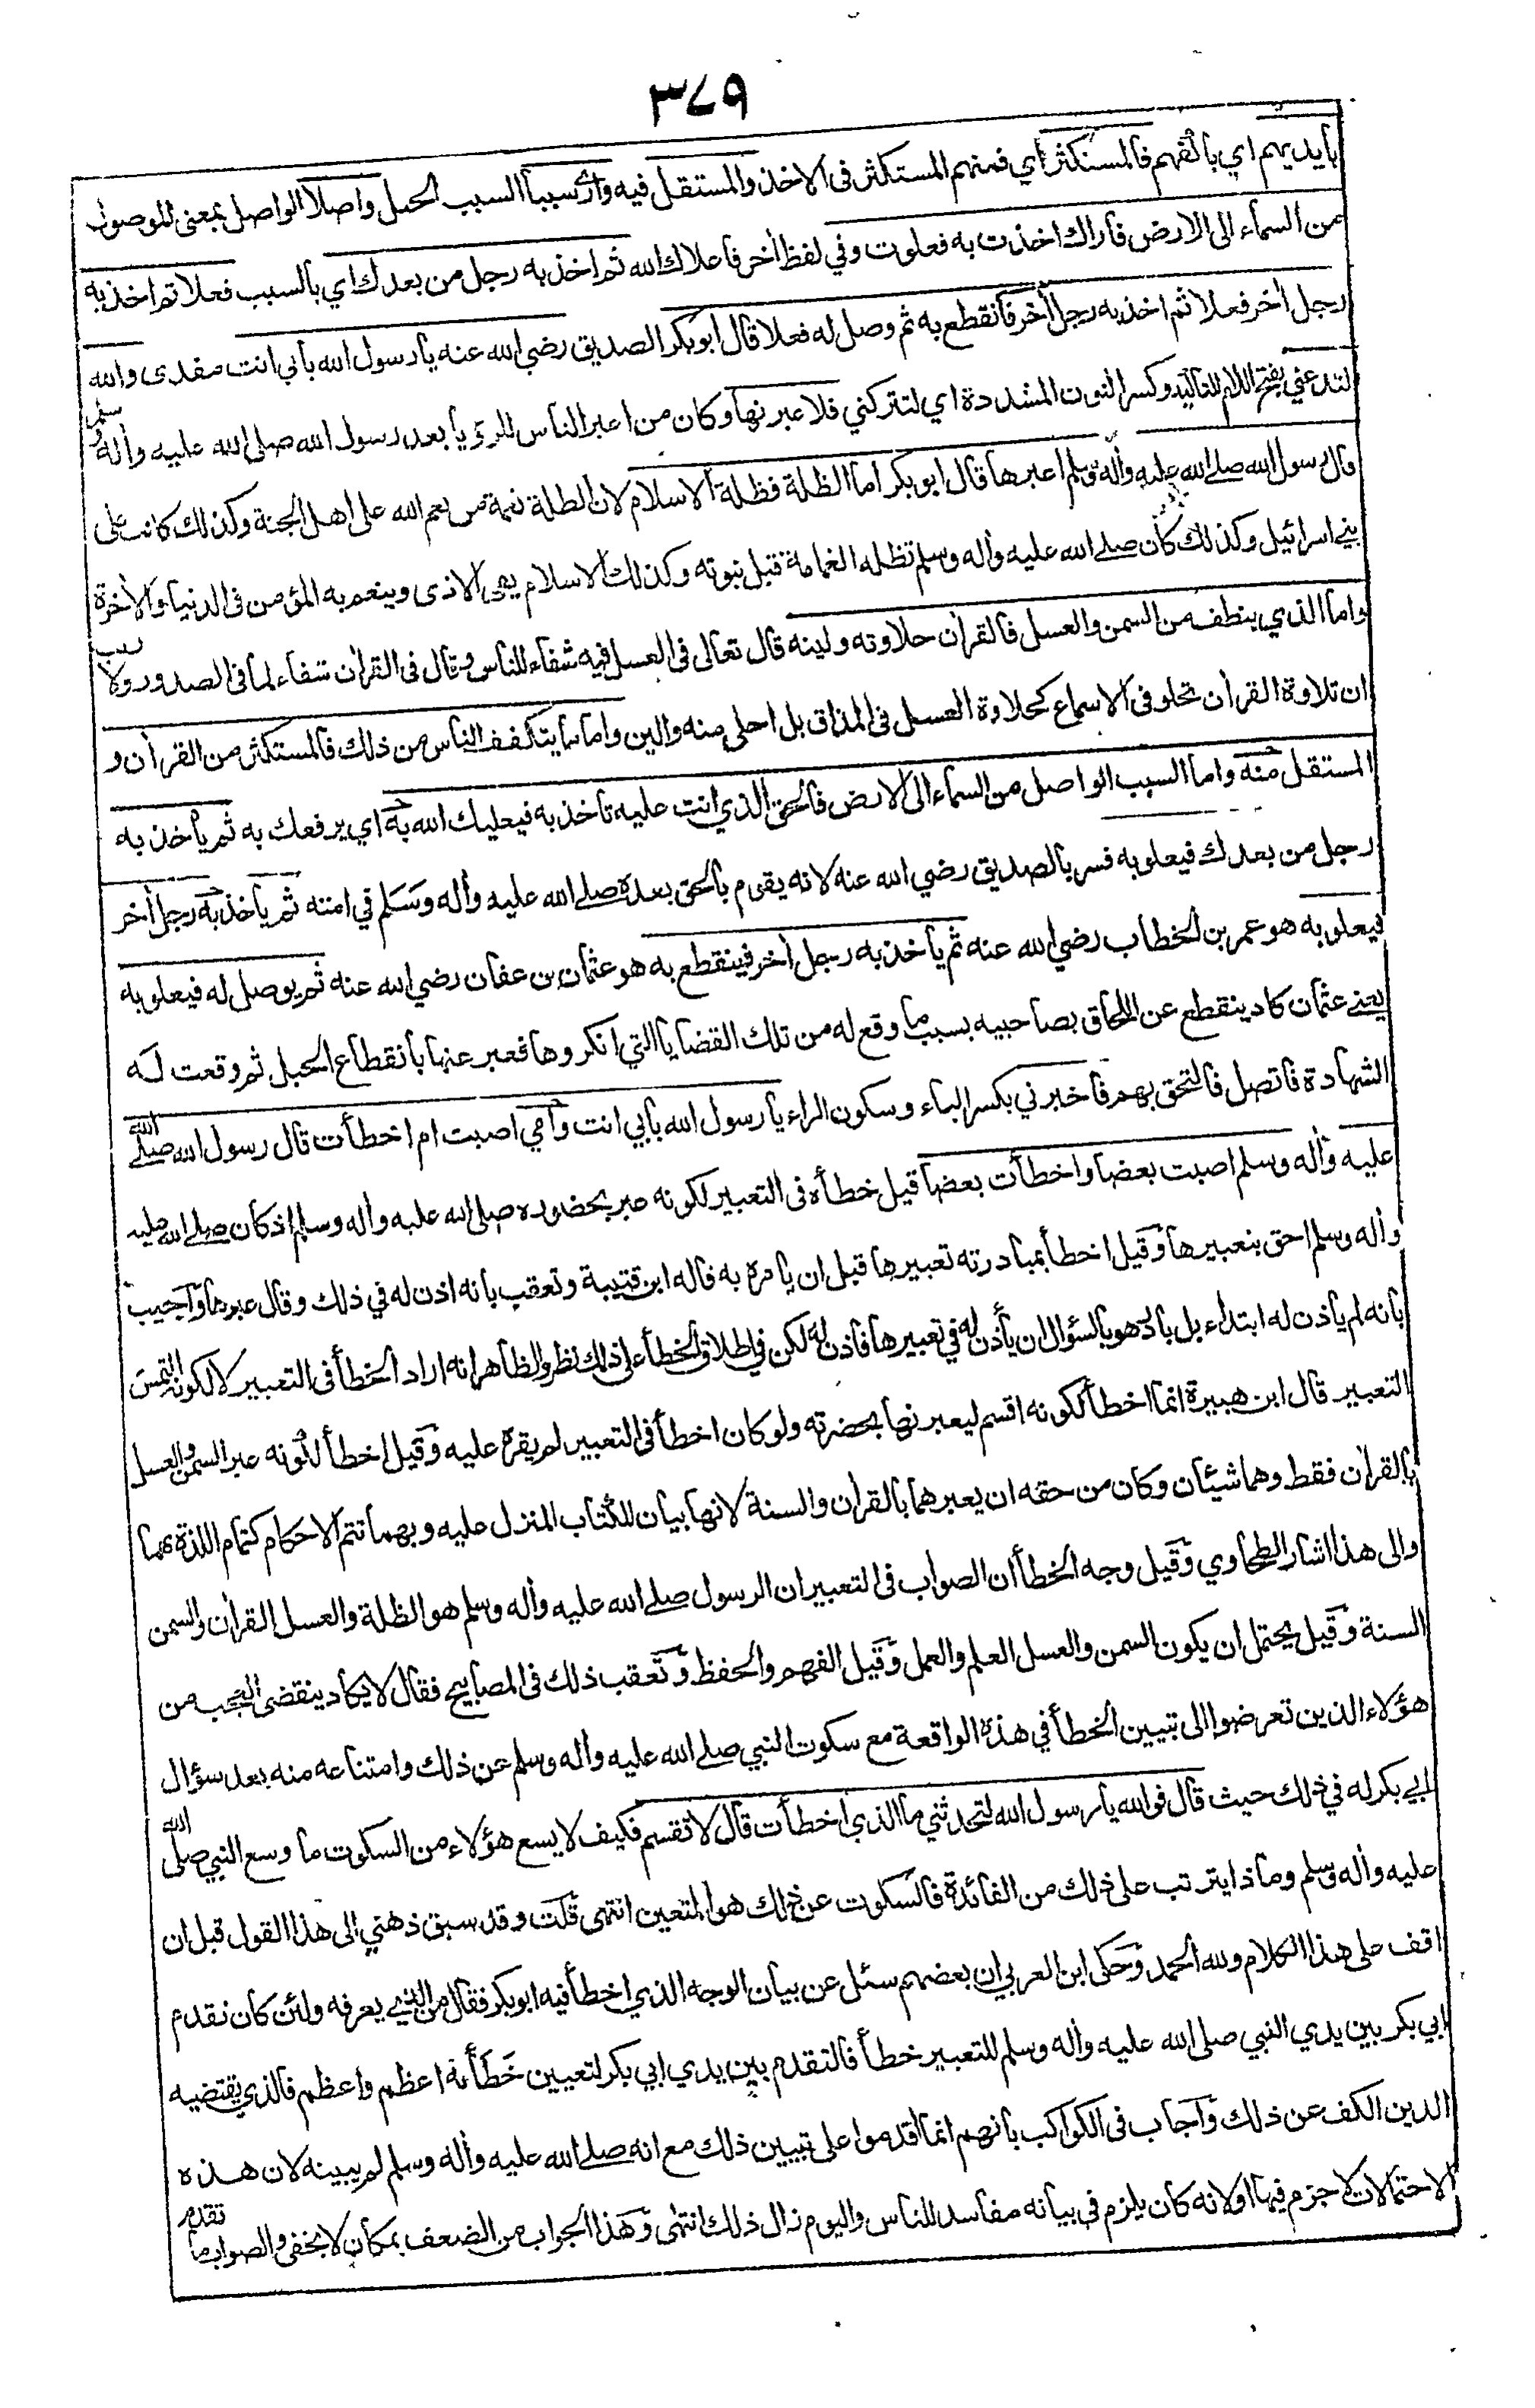 ٣٧٩
بايديهم اي بالفهم فالمستكثر اي فمنهم المستكثر فى الاخذ والمستقل فيه وأرى سببا السبب الحبل واصلا الواصل بمعنى الموصول
من السماء الى الارض فاراك اخذت به فعلوت وفي لفظ أخر فاعلاك الله ثم اخذ به رجل من بعدك اي بالسبب فعلا ثم اخذ به
رجل أخر فعلا ثم اخذ به رجل أخر فانقطع به ثم وصل له فعلا قال ابو بكر الصديق رضي الله عنه يا رسول الله بابي انت مفدى والله
لتدعني بفتح اللام للتاكيد وكسر النون المشددة اي لتتركني فلا عبرنها وكان من اعبر الناس للرؤيا بعد رسول الله صلى الله عليه وأله وسلم
قال رسول الله صلى الله عليه وأله وسلم اعبرها قال ابو بكر اما الظلة فظلة الاسلام لان الظلة نعمة من نعم الله على اهل الجنة وكذلك كانت على
بني اسرائيل وكذلك كان صلے الله عليه وأله وسلم تظله الغمامة قبل نبوته وكذلك الاسلام يقي الاذى وينعم به المؤمن فى الدنيا والأخرة
واما الذي ينطف من السمن والعسل فالقرأن حلاوته ولينه قال تعالى فى العسل فيه شفاء للناس وقال فى القرأن شفاء لما فى الصدور ولا ريب
ان تلاوة القرأن تحلو فى الاسماع كحلاوة العسل فى المذاق بل احلى منه والين واما ما يتكفف الناس من ذلك فالمستكثر من القرأن و
المستقل منه واما السبب الواصل من السماء الى الارض فالحق الذي انت عليه تاخذ به فيعليك الله به اي يرفعك به ثم يأخذ به
رجل من بعدك فيعلو به فسر بالصديق رضي الله عنه لانه يقوم بالحق بعده صلے الله عليه وأله وسلم في امته ثم يأخذ به رجل أخر
فيعلو به هو عمر بن الخطاب رضي الله عنه ثم يأخذ به رجل أخر فينقطع به هو عثمان بن عفان رضي الله عنه ثم يوصل له فيعلو به
يعني عثمان كاد ينقطع عن اللحاق بصاحبيه بسبب ما وقع له من تلك القضايا التي انكروها فعبر عنها بانقطاع الحبل ثم وقعت له
الشهادة فاتصل فالتحق بهم فاخبرني بكسر الباء وسكون الراء يا رسول الله بابي انت وامي اصبت ام اخطأت قال رسول الله صلے الله
عليه وأله وسلم اصبت بعضا واخطأت بعضها قيل خطأه فى التعبير لكونه عبر بحضوره صلى الله عليه وأله وسلم اذ كان صلے الله عليه
وأله وسلم احق بتعبيرها وقيل اخطأ بمبادرته تعبيرها قبل ان يامره به قاله ابن قتيبة وتعقب بانه اذن له في ذلك وقال عبرها واجيب
بانه لم ياذن له ابتداء بل بادر هو بالسؤال ان يأذن له في تعبيرها فاذن له لكن في اطلاق الخطأ على ذلك نظر والظاهر انه اراد الخطأ فى التعبير لا لكونه التمس
التعبير قال ابن هبيرة انما اخطأ لكونه اقسم ليعبرنها بحضرته ولو كان اخطأ فى التعبير لم يقره عليه وقيل اخطأ لكونه عبر السمن والعسل
بالقرأن فقط وهما شيئان وكان من حقه ان يعبرهما بالقرأن والسنة لانها بيان للكتاب المنزل عليه وبهما تتم الاحكام كتمام اللذة بهما
والى هذا اشار الطحاوي وقيل وجه الخطأ ان الصواب فى التعبير ان الرسول صلے الله عليه وأله وسلم هو الظلة والعسل القرأن والسمن
السنة وقيل يحتمل ان يكون السمن والعسل العلم والعمل وقيل الفهم والحفظ وتعقب ذلك فى المصابيح فقال لا يكاد ينقضى العجب من
هؤلاء الذين تعرضوا الى تبيين الخطأ في هذه الواقعة مع سكوت النبي صلے الله عليه وأله وسلم عن ذلك وامتناعه منه بعد سؤال
ابي بكر له في ذلك حيث قال فوالله يا رسول الله لتحدثني ما الذي اخطأت قال لا تقسم فكيف لا يسع هؤلاء من السكوت ما وسع النبي صلى الله
عليه وأله وسلم وماذا يترتب على ذلك من الفائدة فالسكوت عن ذلك هو المتعين انتهى قلت وقد سبق ذهني الى هذا القول قبل ان
اقف على هذا الكلام ولله الحمد وحكى ابن العربي ان بعضهم سئل عن بيان الوجه الذي اخطأ فيه ابو بكر فقال من الذي يعرفه ولئن كان تقدم
ابي بكر بين يدي النبي صلى الله عليه وأله وسلم للتعبير خطأ فالتقدم بين يدي ابي بكر لتعيين خطأه اعظم واعظم فالذي يقتضيه
الدين الكف عن ذلك واجاب فى الكواكب بانهم انما اقدموا على تبيين ذلك مع انه صلے الله عليه وأله وسلم لم يبينه لان هذه
الاحتمالات لا جزم فيها او لانه كان يلزم في بيانه مفاسد للناس واليوم زال ذلك انتهى وهذا الجواب من الضعف بمكان لا يخفى والصواب ما تقدم